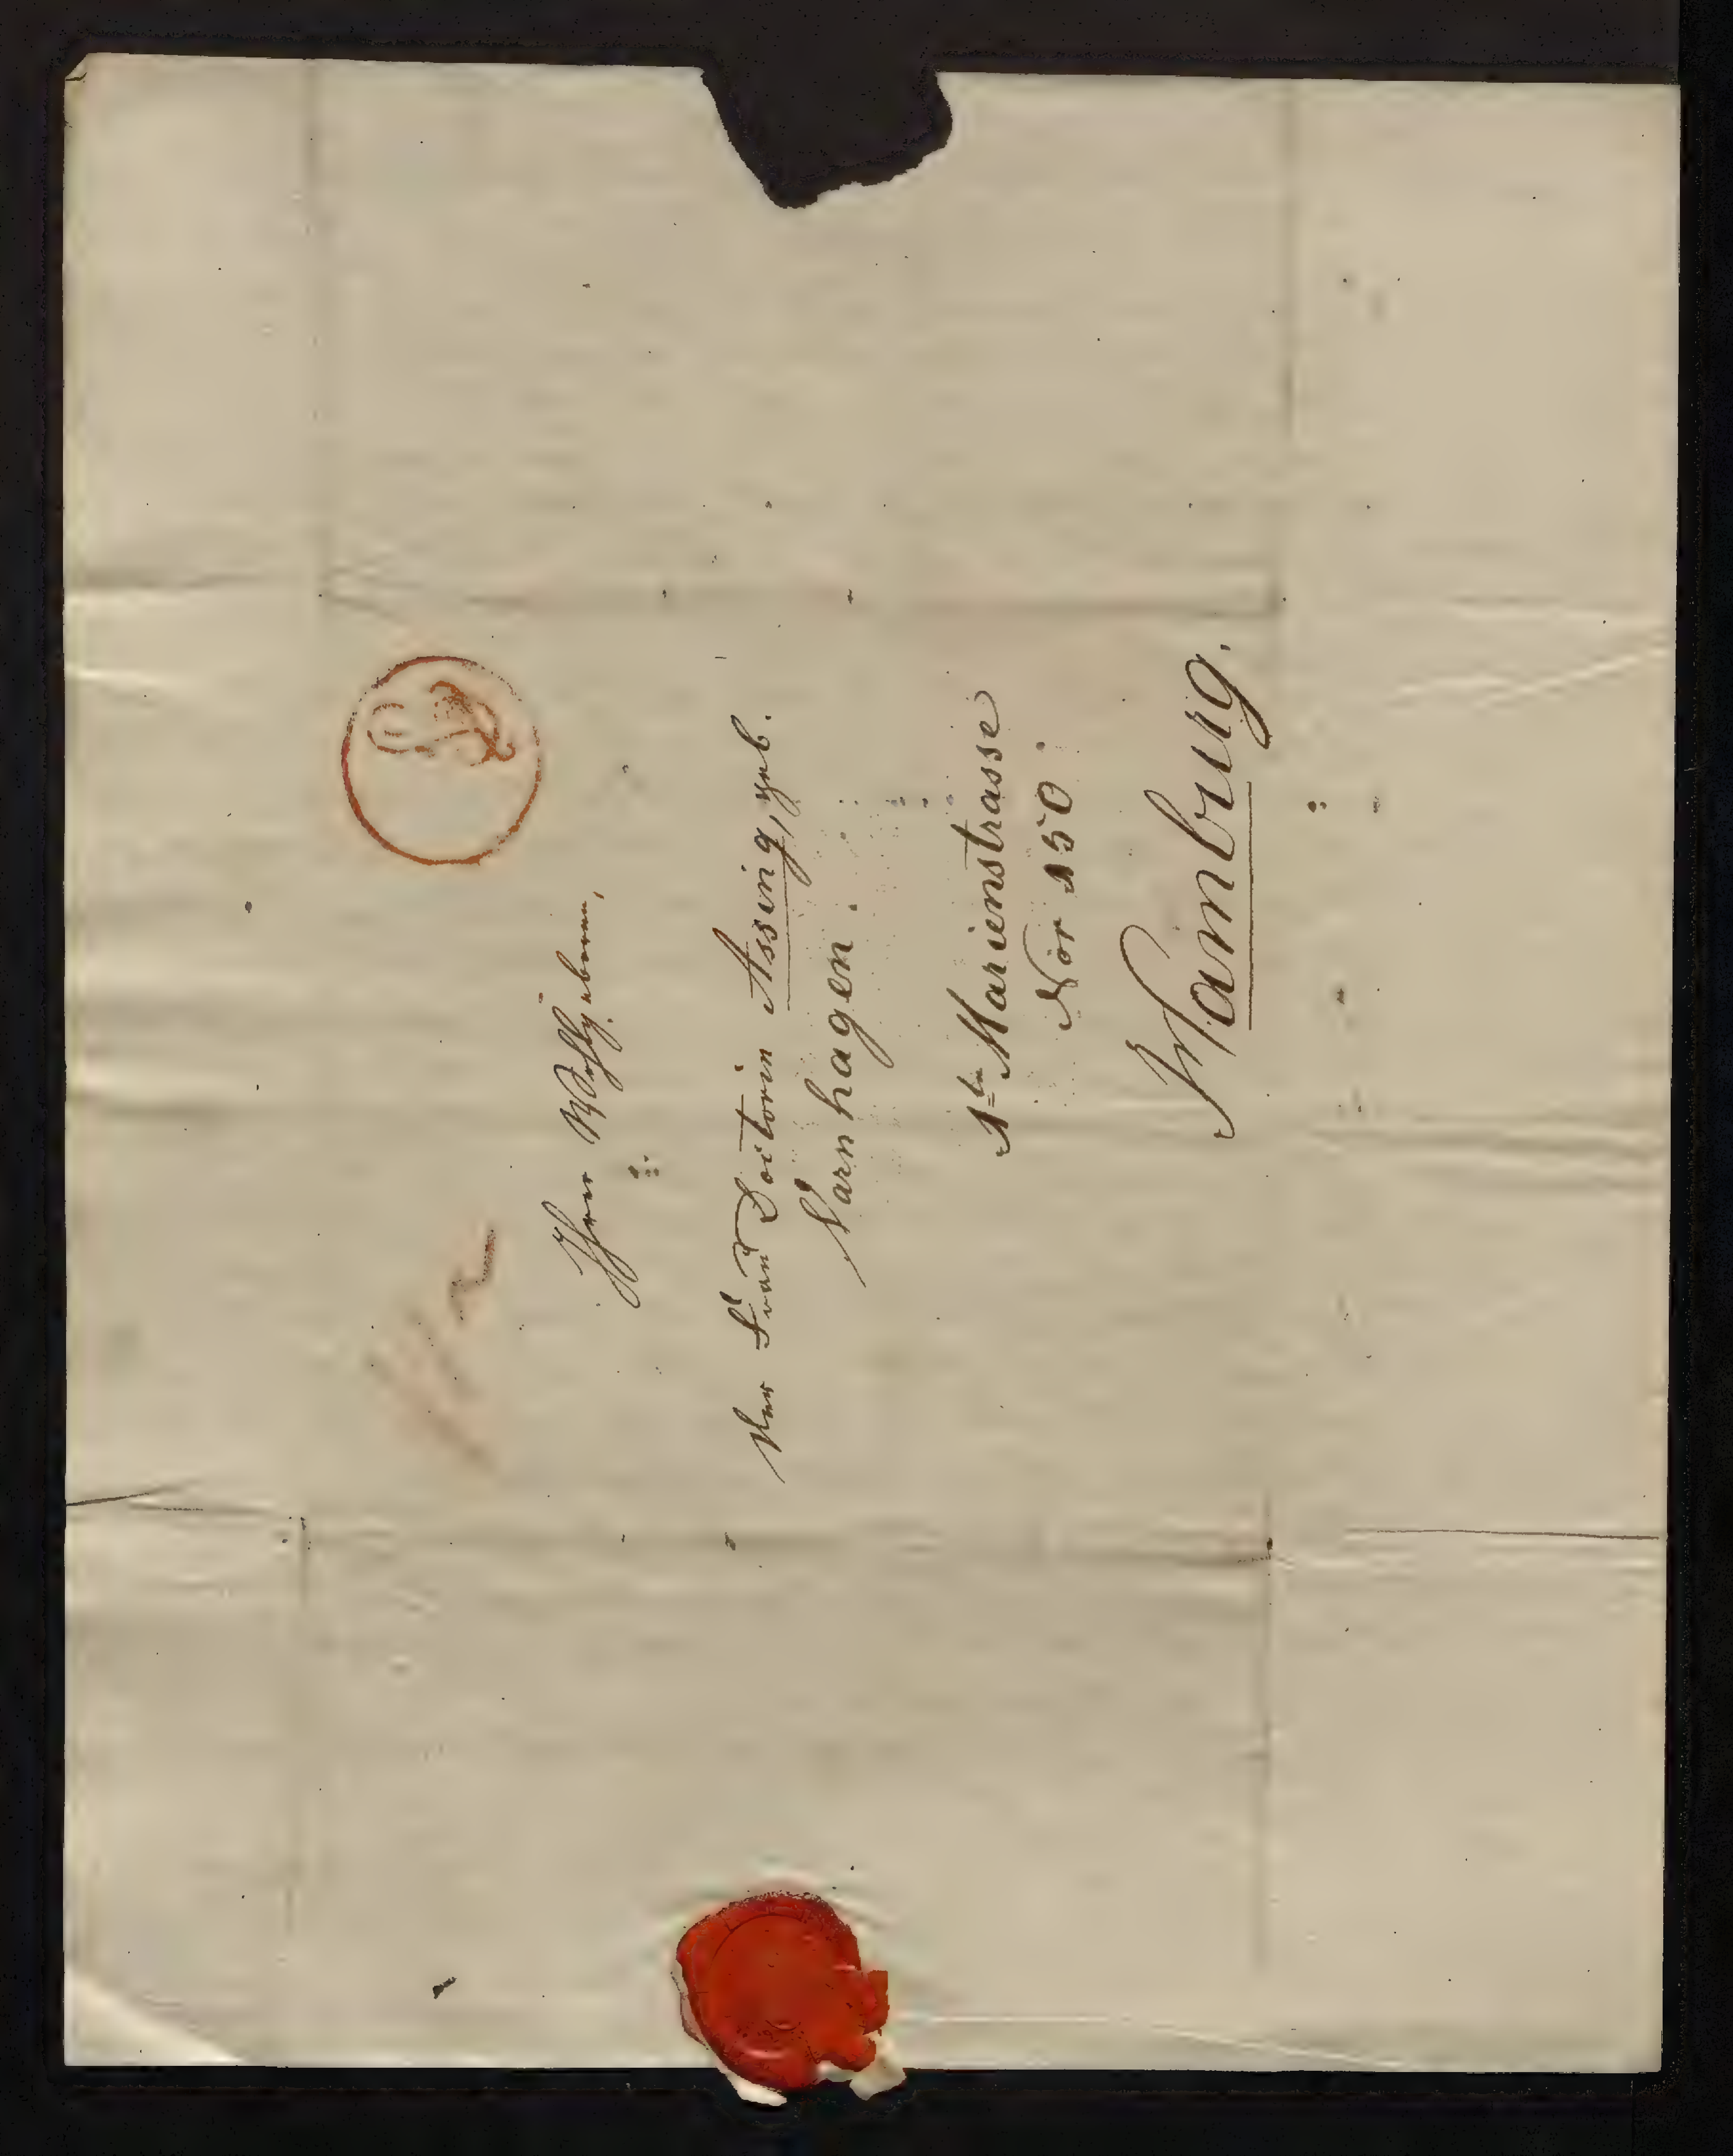 Ihrer Wohlgeboren,
der Frau Doctorin Assing, geb.
Varnhagen.
1te Marienstrasse
Nör 150.
Hamburg.